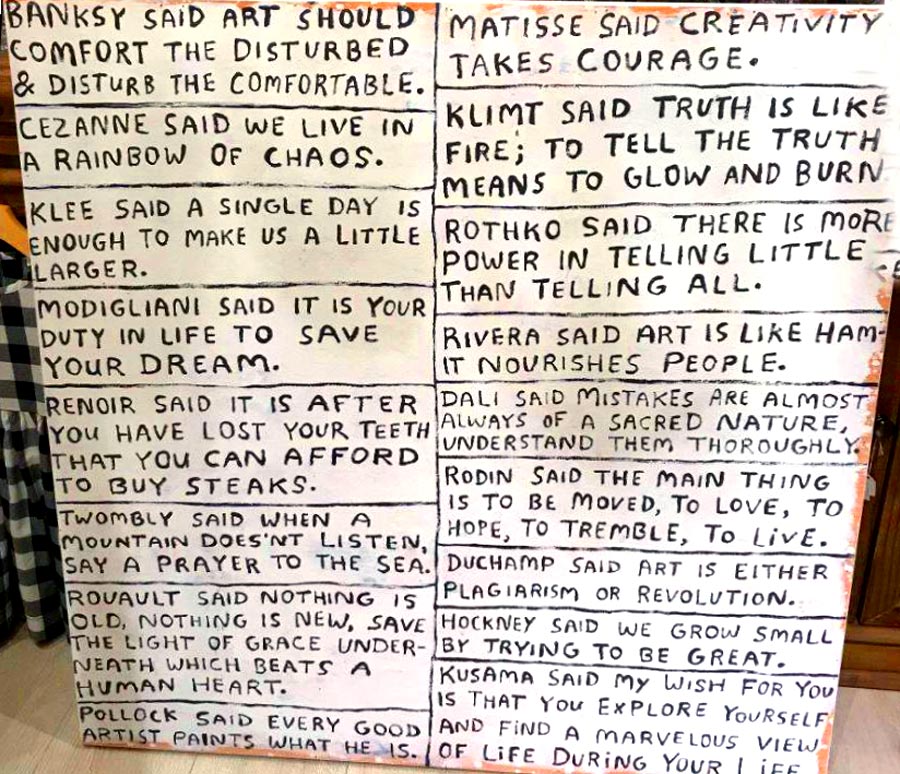 BANKSY SAID ART SHOULD
COMFORT THE DISTURBED
& DISTURB THE COMFORTABLE.
CEZANNE SAID WE LIVE IN
A RAINBOW OF CHAOS.
KLEE SAID A SINGLE DAY IS
ENOUGH TO MAKE US A LITTLE
LARGER.
MODIGLIANI SAID IT IS YOUR
DUTY IN LIFE TO SAVE
YOUR DREAM.
RENOIR SAID IT IS AFTER
YOU HAVE LOST YOUR TEETH
THAT YOU CAN AFFORD
TO BUY STEAKS.
TWOMBLY SAID WHEN A
MOUNTAIN DOES'NT LISTEN,
SAY A PRAYER TO THE SEA.
ROUAULT SAID NOTHING IS
OLD, NOTHING IS NEW, SAVE
THE LIGHT OF GRACE UNDER-
NEATH WHICH BEATS A
HUMAN HEART.
POLLOCK SAID EVERY GOOD
ARTIST PAINTS WHAT HE IS.
MATISSE SAID CREATIVITY
TAKES COURAGE.
KLIMT SAID TRUTH IS LIKE
FIRE; TO TELL THE TRUTH
MEANS TO GLOW AND BURN
ROTHKO SAID THERE IS MORE
POWER IN TELLING LITTLE
THAN TELLING ALL.
RIVERA SAID ART IS LIKE HAM-
IT NOURISHES PEOPLE.
DALI SAID MISTAKES ARE ALMOST
ALWAYS OF A SACRED NATURE,
UNDERSTAND THEM THOROUGHLY.
RODIN SAID THE MAIN THING
IS TO BE MOVED, TO LOVE, TO
HOPE, TO TREMBLE, TO LIVE.
DUCHAMP SAID ART IS EITHER
PLAGIARISM OR REVOLUTION.
HOCKNEY SAID WE GROW SMALL
BY TRYING TO BE GREAT.
KUSAMA SAID MY WISH FOR YOU
IS THAT YOU EXPLORE YOURSELF
AND FIND A MARVELOUS VIEW
OF LIFE DURING YOUR LIFE